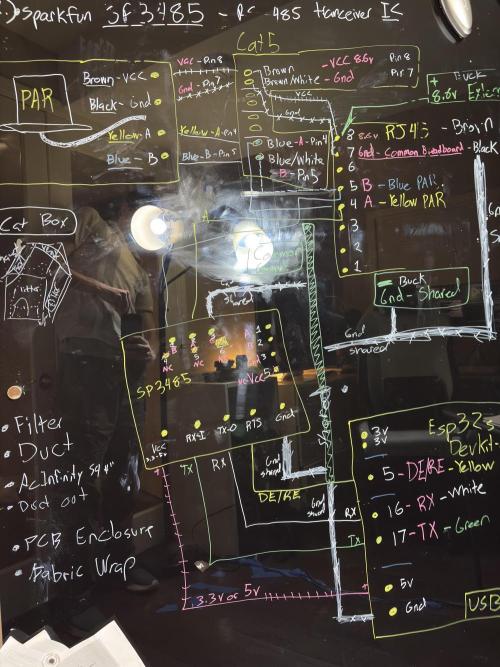 Sparkfun SP3485 - RS-485 Tranceiver IC
Cat5
PAR
Brown - VCC
Black - Gnd
Yellow - A
Blue - B
VCC - Pin 8
Gnd - Pin 7
Yellow - A - Pin 4
Blue - B - Pin 5
Brown - VCC 8.6v Pin 8
Brown/White - Gnd Pin 7
VCC
Gnd
Blue - A - Pin 4
Blue/White
- B - Pin 5
+ Buck
8.6v Extern
8 8.6v RJ45 - Brown
7 Gnd - Common Breadboard - Black
6
5 B - Blue PAR
4 A - Yellow PAR
3
2
1
Buck
Gnd - Shared
Gnd
shared
Cat Box
Filter
A
Common
shared
SP3485
1
2
3
5
NC
NC
VCC
VCC
RX-I
TX-O
RTS
Gnd
TX
RX
Gnd
shared
DE/RE
Gnd
shared
RX
TX
3.3v or 5v
Esp32s
DevKit-
3v
3v
5 - DE/RE - Yellow
16 - RX - White
17 - TX - Green
5v
Gnd
USB
• Filter
• Duct
• AcInfinity S4 4"
• Duct out
• PCB Enclosure
• Fabric Wrap